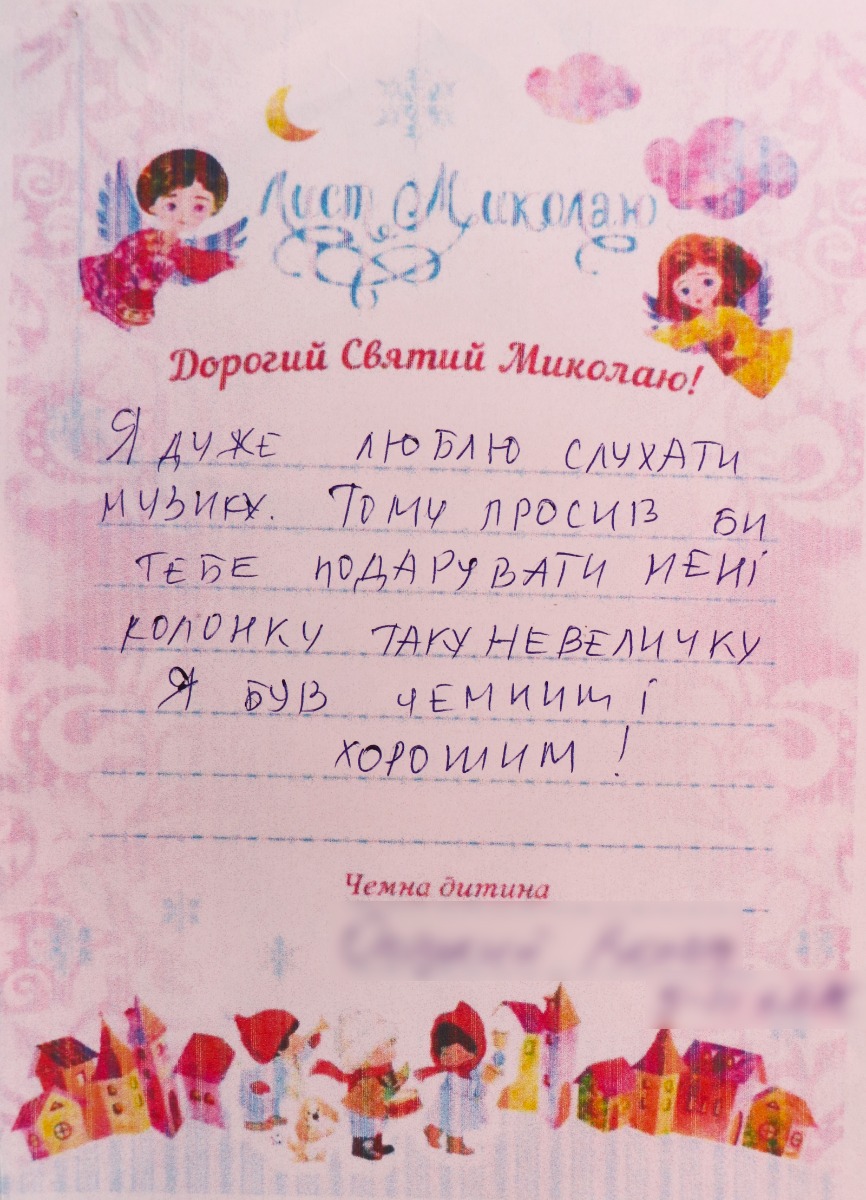 Лист Миколаю
Дорогий Святий Миколаю!
Я ДУЖЕ ЛЮБЛЮ СЛУХАТИ
МУЗИКУ. ТОМУ ПРОСИВ БИ
ТЕБЕ ПОДАРУВАТИ МЕНІ
КОЛОНКУ ТАКУ НЕВЕЛИЧКУ
Я БУВ ЧЕМНИМ І
ХОРОШИМ!
Чемна дитина